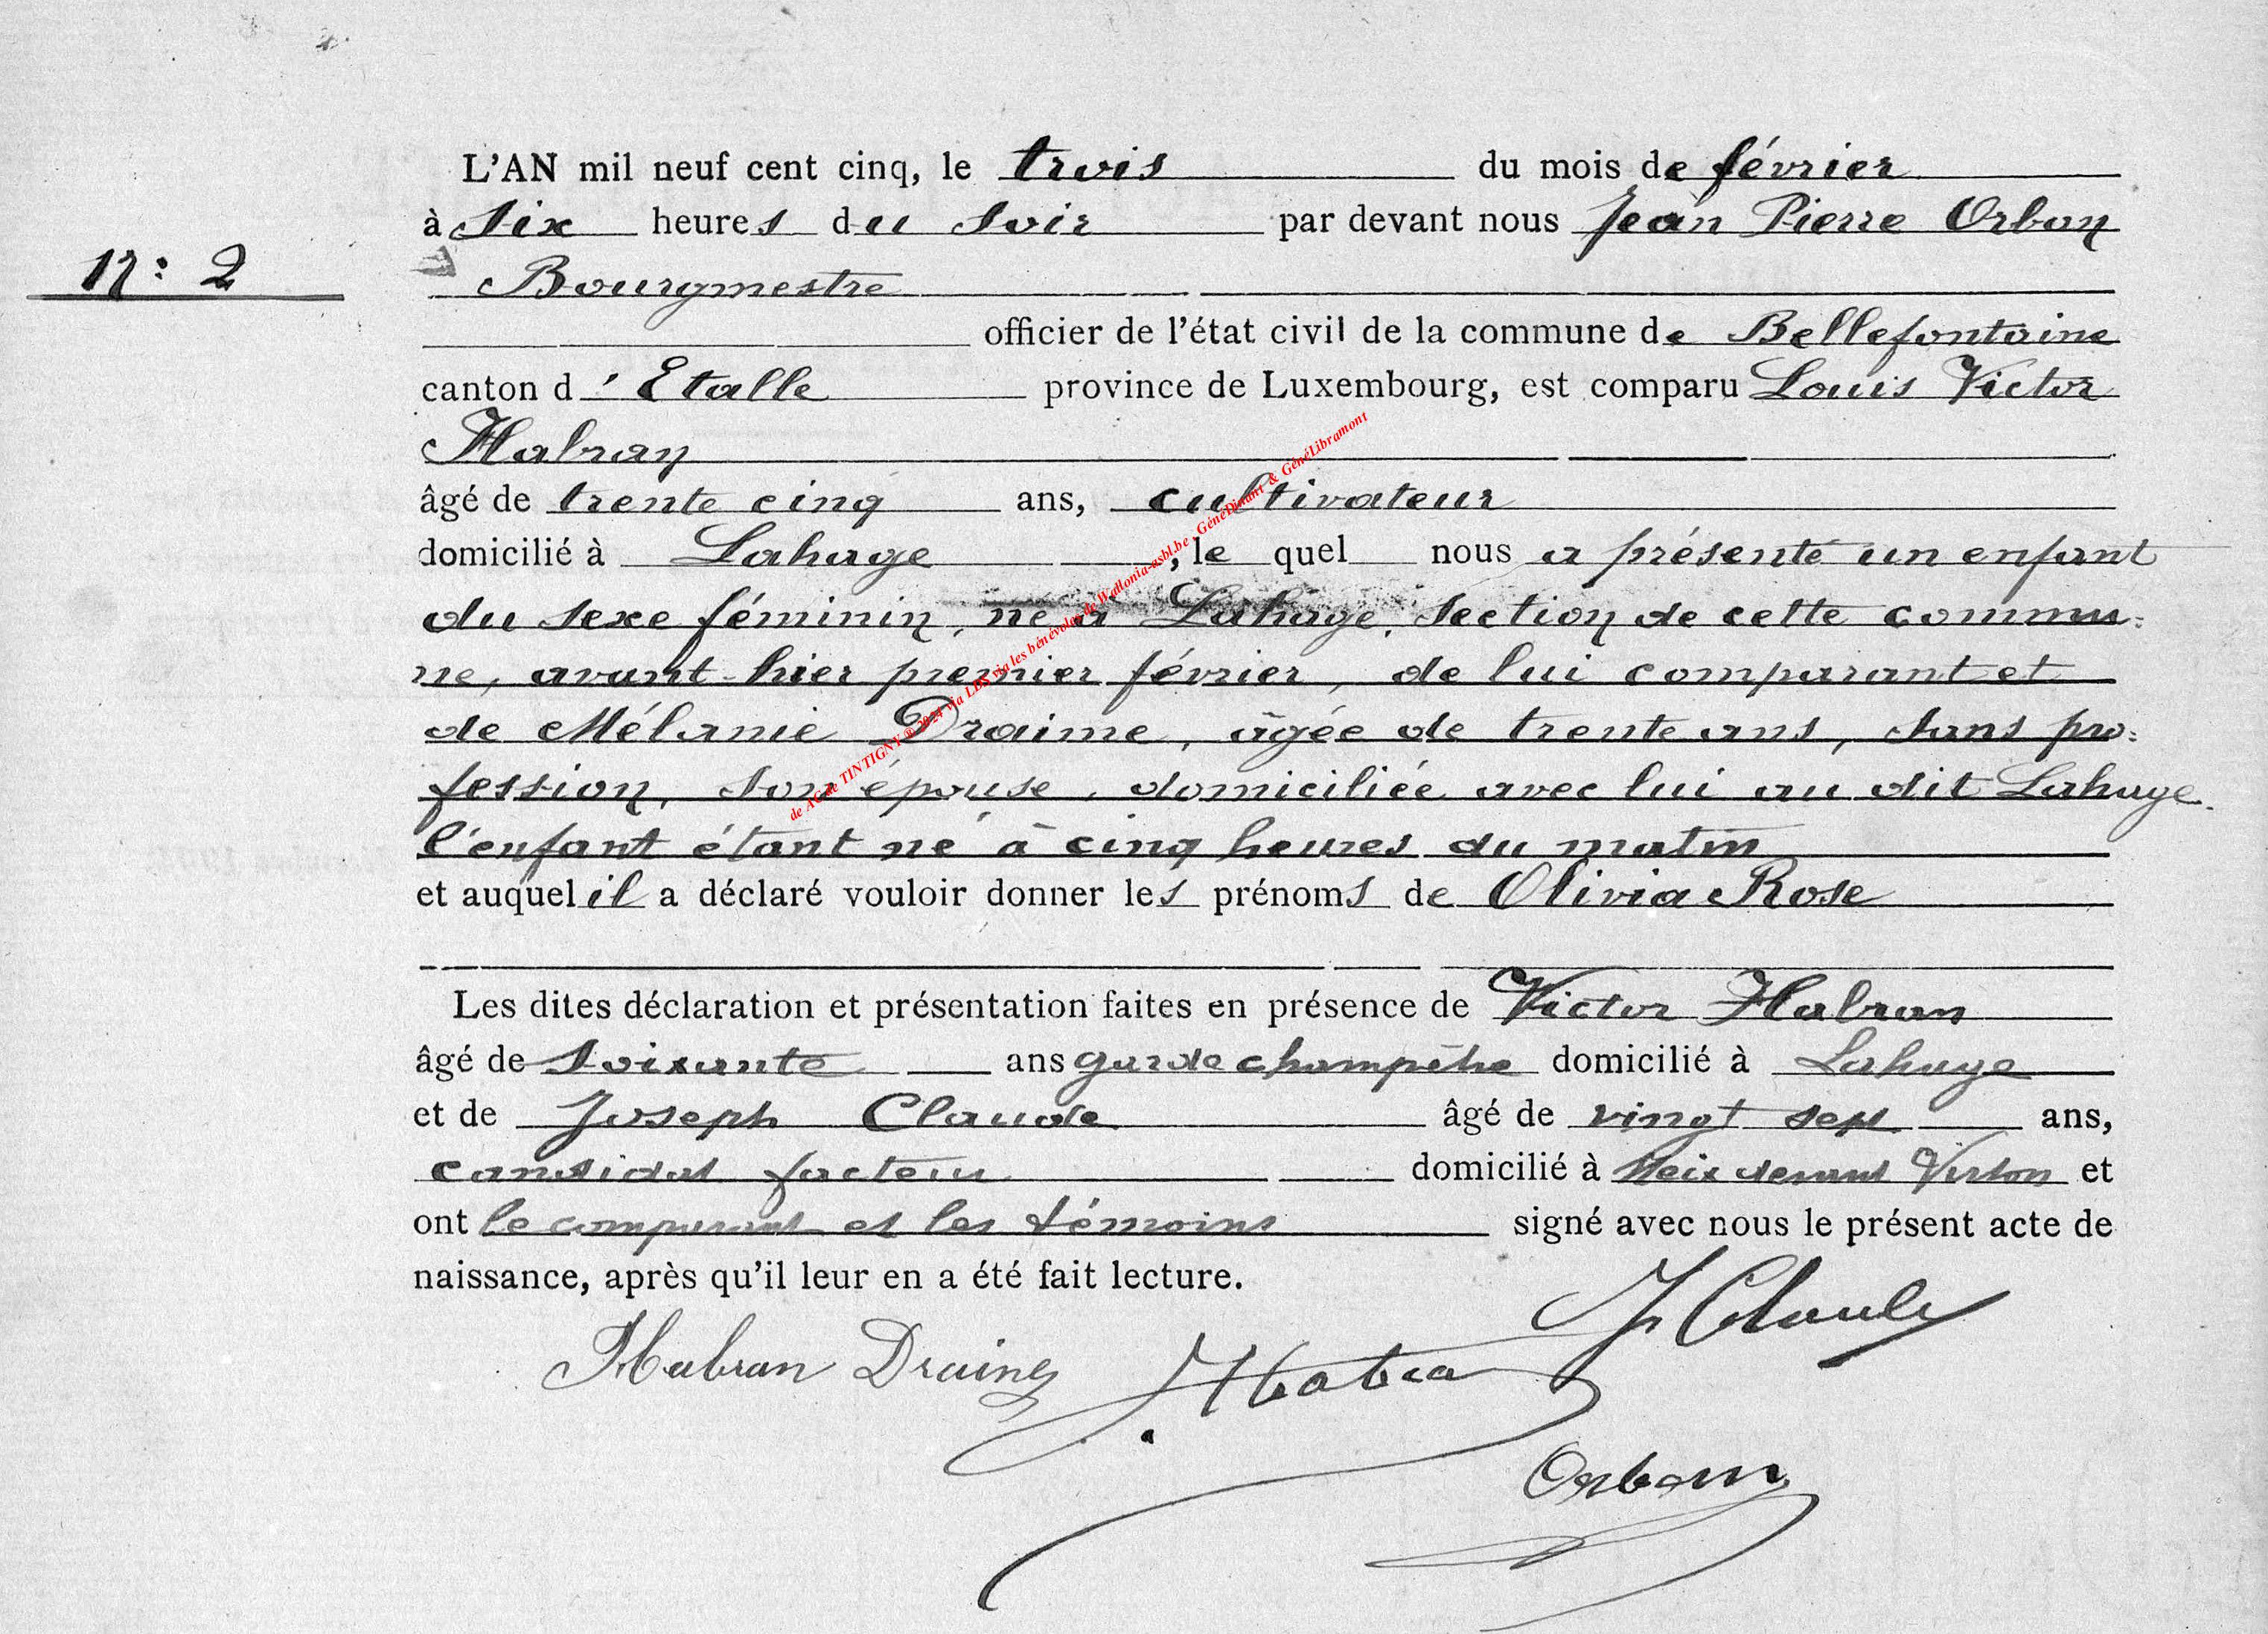 L'AN mil neuf cent cinq, le trois du mois de février
à six heures du soir par devant nous Jean Pierre Orban
N: 2
Bourgmestre
officier de l'état civil de la commune de Bellefontaine
canton d'Etalle province de Luxembourg, est comparu Louis Victor
Habran
âgé de trente cinq ans, cultivateur
domicilié à Lahage, le quel nous a présenté un enfant
du sexe féminin, né à Lahage, section de cette commu:
ne, avant-hier premier février, de lui comparant et
de Mélanie Draime, âgée de trente ans, sans pro:
fession, son épouse, domiciliée avec lui au dit Lahage.
l'enfant étant né à cinq heures du matin
et auquel il a déclaré vouloir donner les prénoms de Olivia Rose
Les dites déclaration et présentation faites en présence de Victor Habran
âgé de soixante ans garde champêtre domicilié à Lahage
et de Joseph Claude âgé de vingt sept ans,
candidat facteur domicilié à Meix devant Virton et
ont le comparant et les témoins signé avec nous le présent acte de
naissance, après qu'il leur en a été fait lecture.
J Claude
Habran Draime Habra
Orban
de AC de TINTIGNY © 2024 via LDS via les bénévoles de Wallonia-asbl.be - GénéDinant & GénéLibramont